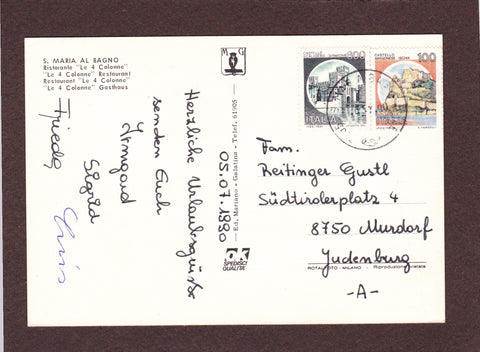 S. MARIA AL BAGNO
Ristorante "Le 4 Colonne"
"Le 4 Colonne" Restaurant
Restaurant "Le 4 Colonne"
"Le 4 Colonne" Gasthaus
05.07.1990
Herzliche Urlaubsgrüße
senden Euch
Irmgard
Sigrid
Frieda
Chris
M G
Ed. Mariano - Galatina - Telef. 61905
SPEDISCI
QUALITÀ
ITALIA
CASTELLO
100
Fam.
Reitinger Gustl
Südtirolerplatz 4
8750 Murdorf
Judenburg
-A-
ROTALFOTO - MILANO - Riproduzione vietata